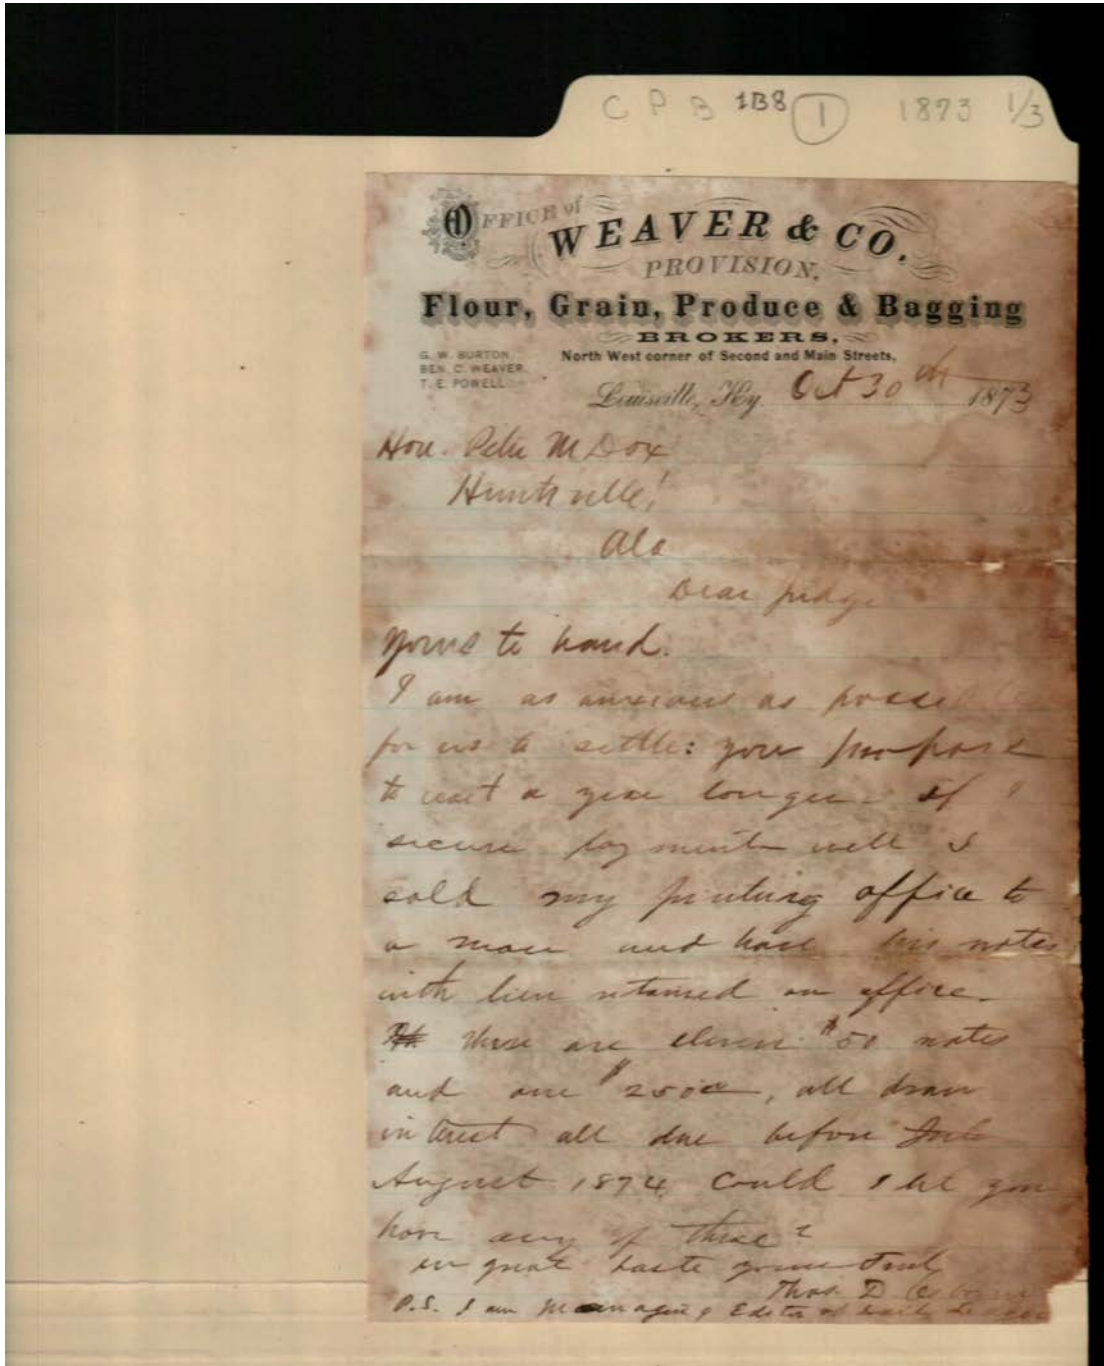 C P B 1B8 1 1873 1/3
OFFICE of
WEAVER & CO.
PROVISION,
Flour, Grain, Produce & Bagging
BROKERS,
G. W. BURTON,
BEN. C. WEAVER,
T. E. POWELL
North West corner of Second and Main Streets,
Louisville, Ky. Oct 30th 1873
Hon. Peter M Dox
Huntsville,
Ala
Dear Judge
Yours to hand.
I am as anxious as possible
for us to settle: you propose
to wait a year longer if I
secure payment well I
sold my printing office to
a man and have his notes
with lien retained on office.
These are eleven $50 notes
and one $2500, all draw
interest all due before
August 1874 Could I let you
have any of these?
in great haste yours Truly
Thos. D. Osborne
P.S. I am Managing Editor of Daily